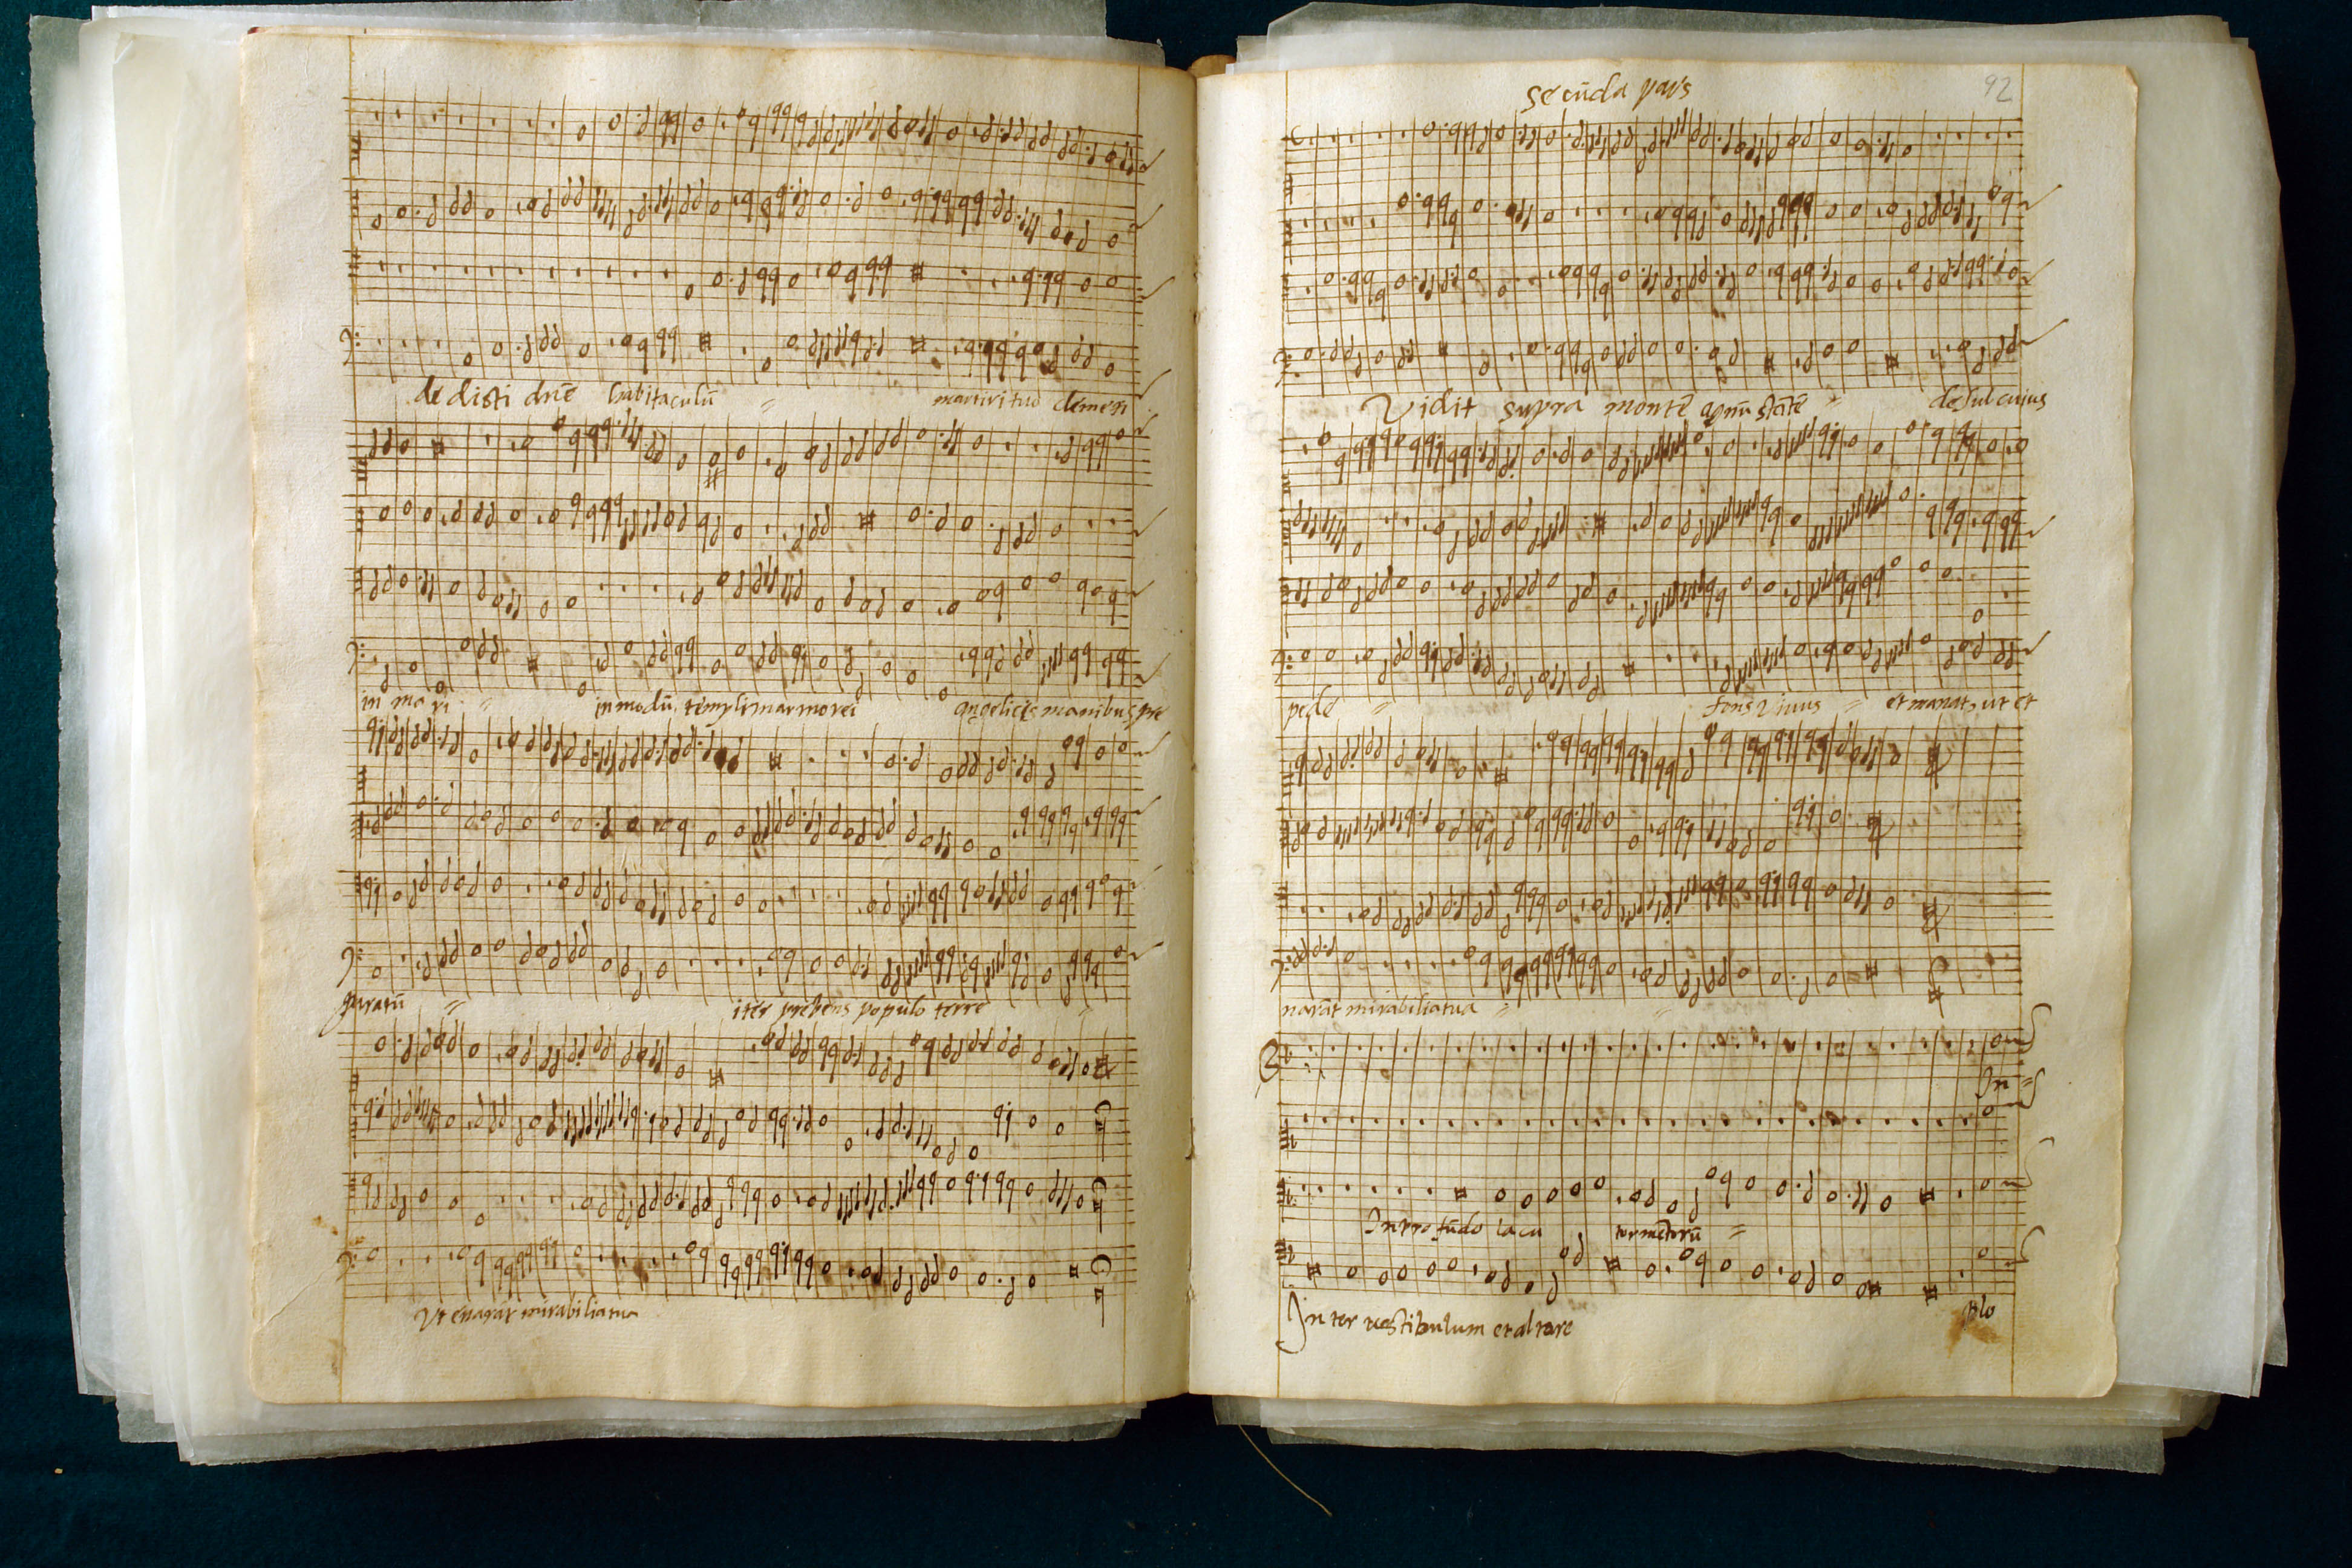 dedisti dnē habitaculū = martiri tuo clemen
in mari = in modū templi marmorei angelicis manibus pre
paratū = iter prebens populo terre =
Ut enarāt mirabilia tua
secūda pars
92
Vidit supra montē agnū stātē = de sub cuius
pede = fons vivus = et manat ut et
narāt mirabilia tua = =
In =
In profūdo lacu tormētorū =
Inter vestibulum et altare plo